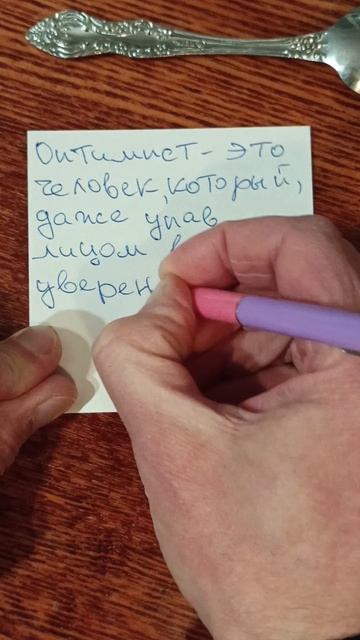 Оптимист - это
человек, который,
даже упав
лицом в
уверен